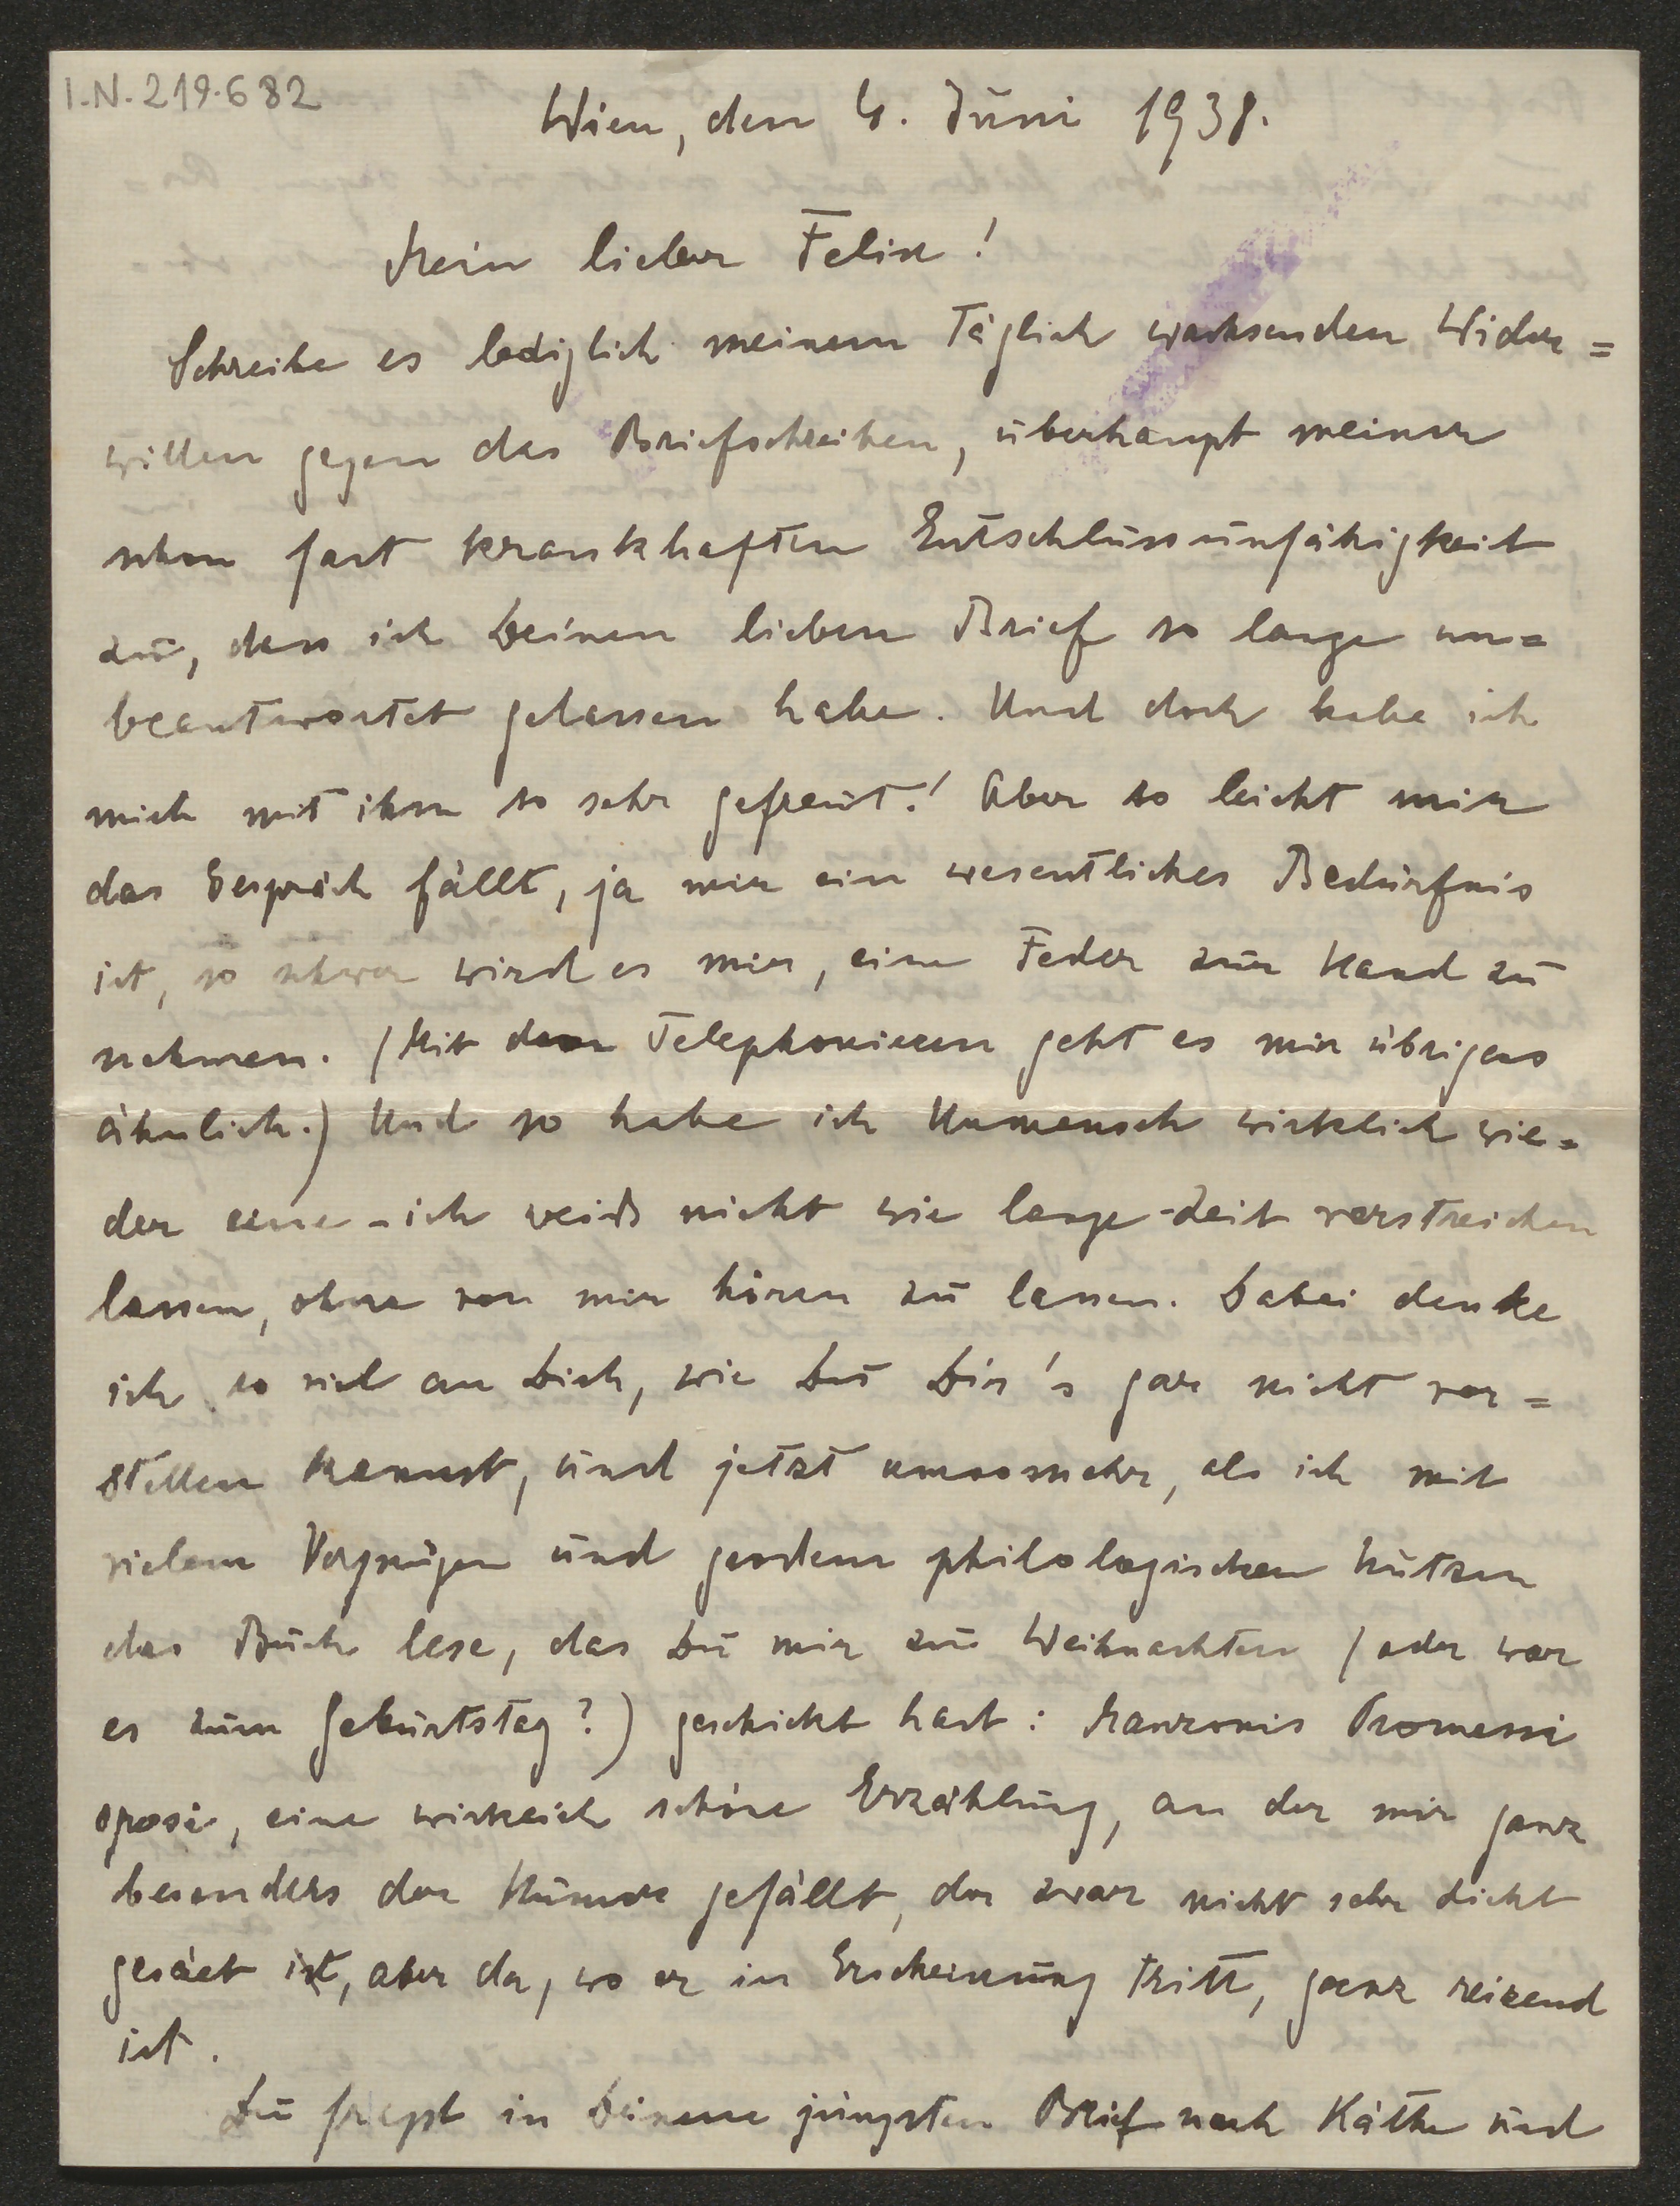 I.N. 219.682
Wien, den 4. Juni 1938.
Mein lieber Felix!
Schreibe es lediglich meinem täglich wachsenden Wider=
willen gegen das Briefschreiben, überhaupt meiner
schon fast krankhaften Entschlussunfähigkeit
zu, dass ich Deinen lieben Brief so lange un=
beantwortet gelassen habe. Und doch habe ich
mich mit ihm so sehr gefreut! Aber so leicht mir
das Gespräch fällt, ja mir ein wesentliches Bedürfnis
ist, so schwer wird es mir, eine Feder zur Hand zu
nehmen. (Mit dem Telephonieren geht es mir übrigens
ähnlich.) Und so habe ich Unmensch wirklich wie=
der eine - ich weiß nicht wie lange - Zeit verstreichen
lassen, ohne von mir hören zu lassen. Dabei denke
ich so viel an Dich, wie Du Dir's gar nicht vor=
stellen kannst, und jetzt umsomehr, als ich mit
vielem Vergnügen und großem philologischen Nutzen
das Buch lese, das Du mir zu Weihnachten (oder war
es zum Geburtstag?) geschickt hast: Manzonis Promessi
sposi, eine wirklich schöne Erzählung, an der mir ganz
besonders der Humor gefällt, der zwar nicht sehr dicht
gesäet ist, aber da, wo er in Erscheinung tritt, ganz reizend
ist.
Du fragst in Deinem jüngsten Brief nach Käthe und